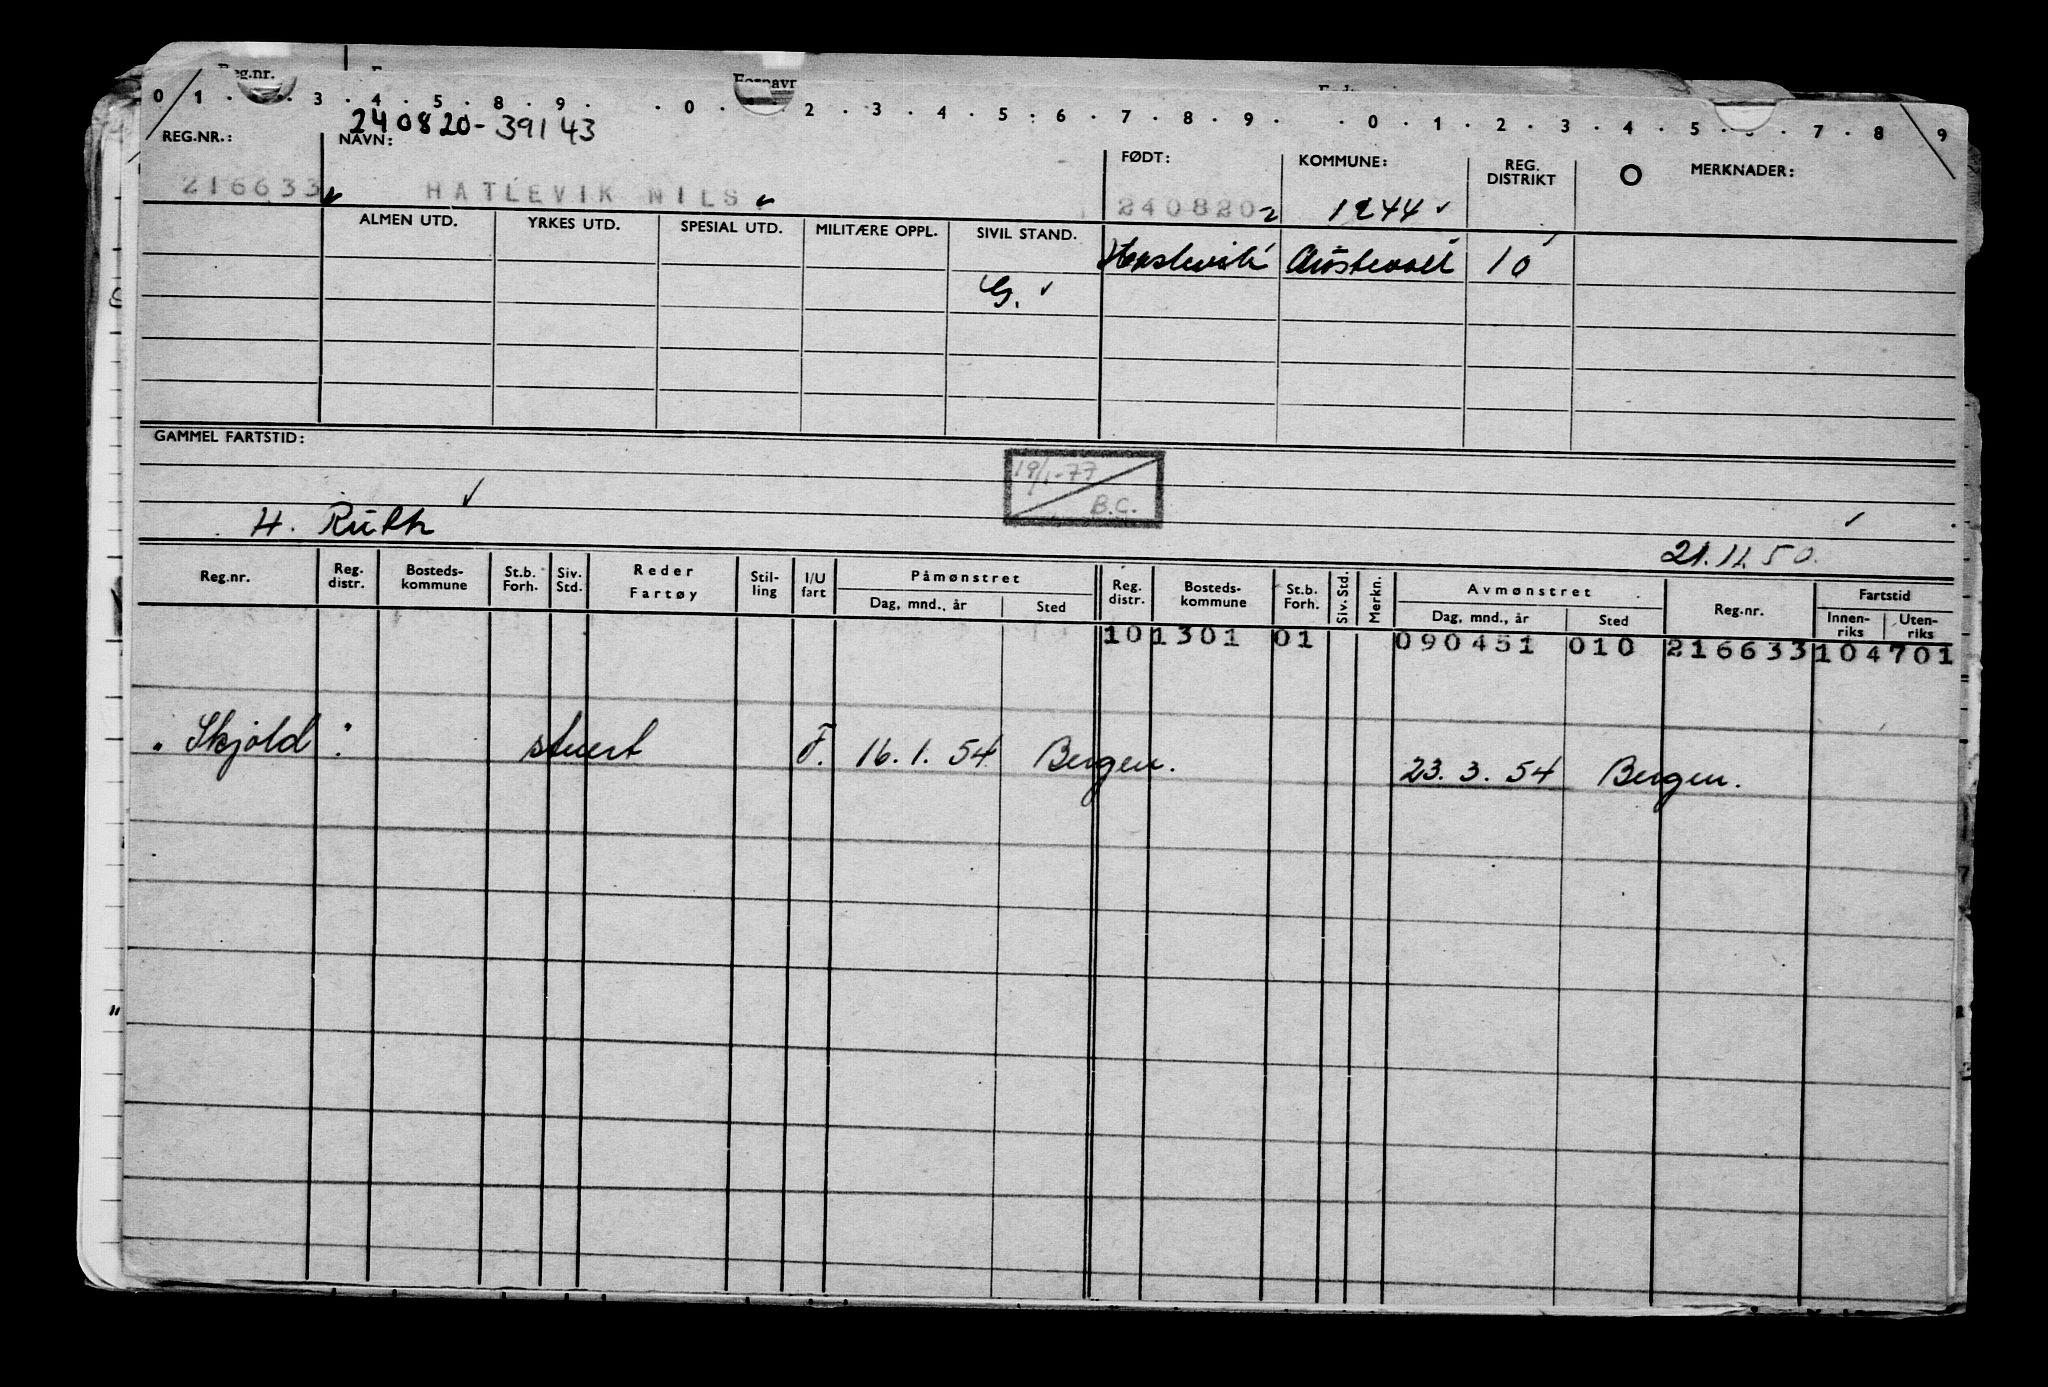 Reg.nr. Fornavn
0 1 . . 3 . 4 . 5 . 8 . 9 . . 0 . . 2 . 3 . 4 . 5 . 6 . 7 . 8 . 9 . . 0 . 1 . 2 . 3 . 4 . 5 . . 7 . 8 9
240820-39143
REG.NR.: NAVN: FØDT: KOMMUNE: REG. DISTRIKT MERKNADER:
216633 HATLEVIK NILS 240820 2 1244
ALMEN UTD. YRKES UTD. SPESIAL UTD. MILITÆRE OPPL. SIVIL STAND. Austevoll 10
G.
GAMMEL FARTSTID:
19/1-77
B.C.
H. Ruth
21.11.50.
Reg.nr. Reg. distr. Bosteds-kommune St.b. Forh. Siv. Std. Reder Fartøy Stil-ling I/U fart Påmønstret Dag, mnd., år Sted Reg. distr. Bosteds-kommune St.b. Forh. Siv. Std. Merkn. Avmønstret Dag, mnd., år Sted Reg.nr. Fartstid Innen-riks Uten-riks
10 1301 01 090451 010 216633 104 701
"Skjold". stuert F. 16.1.54 Bergen. 23.3.54 Bergen.